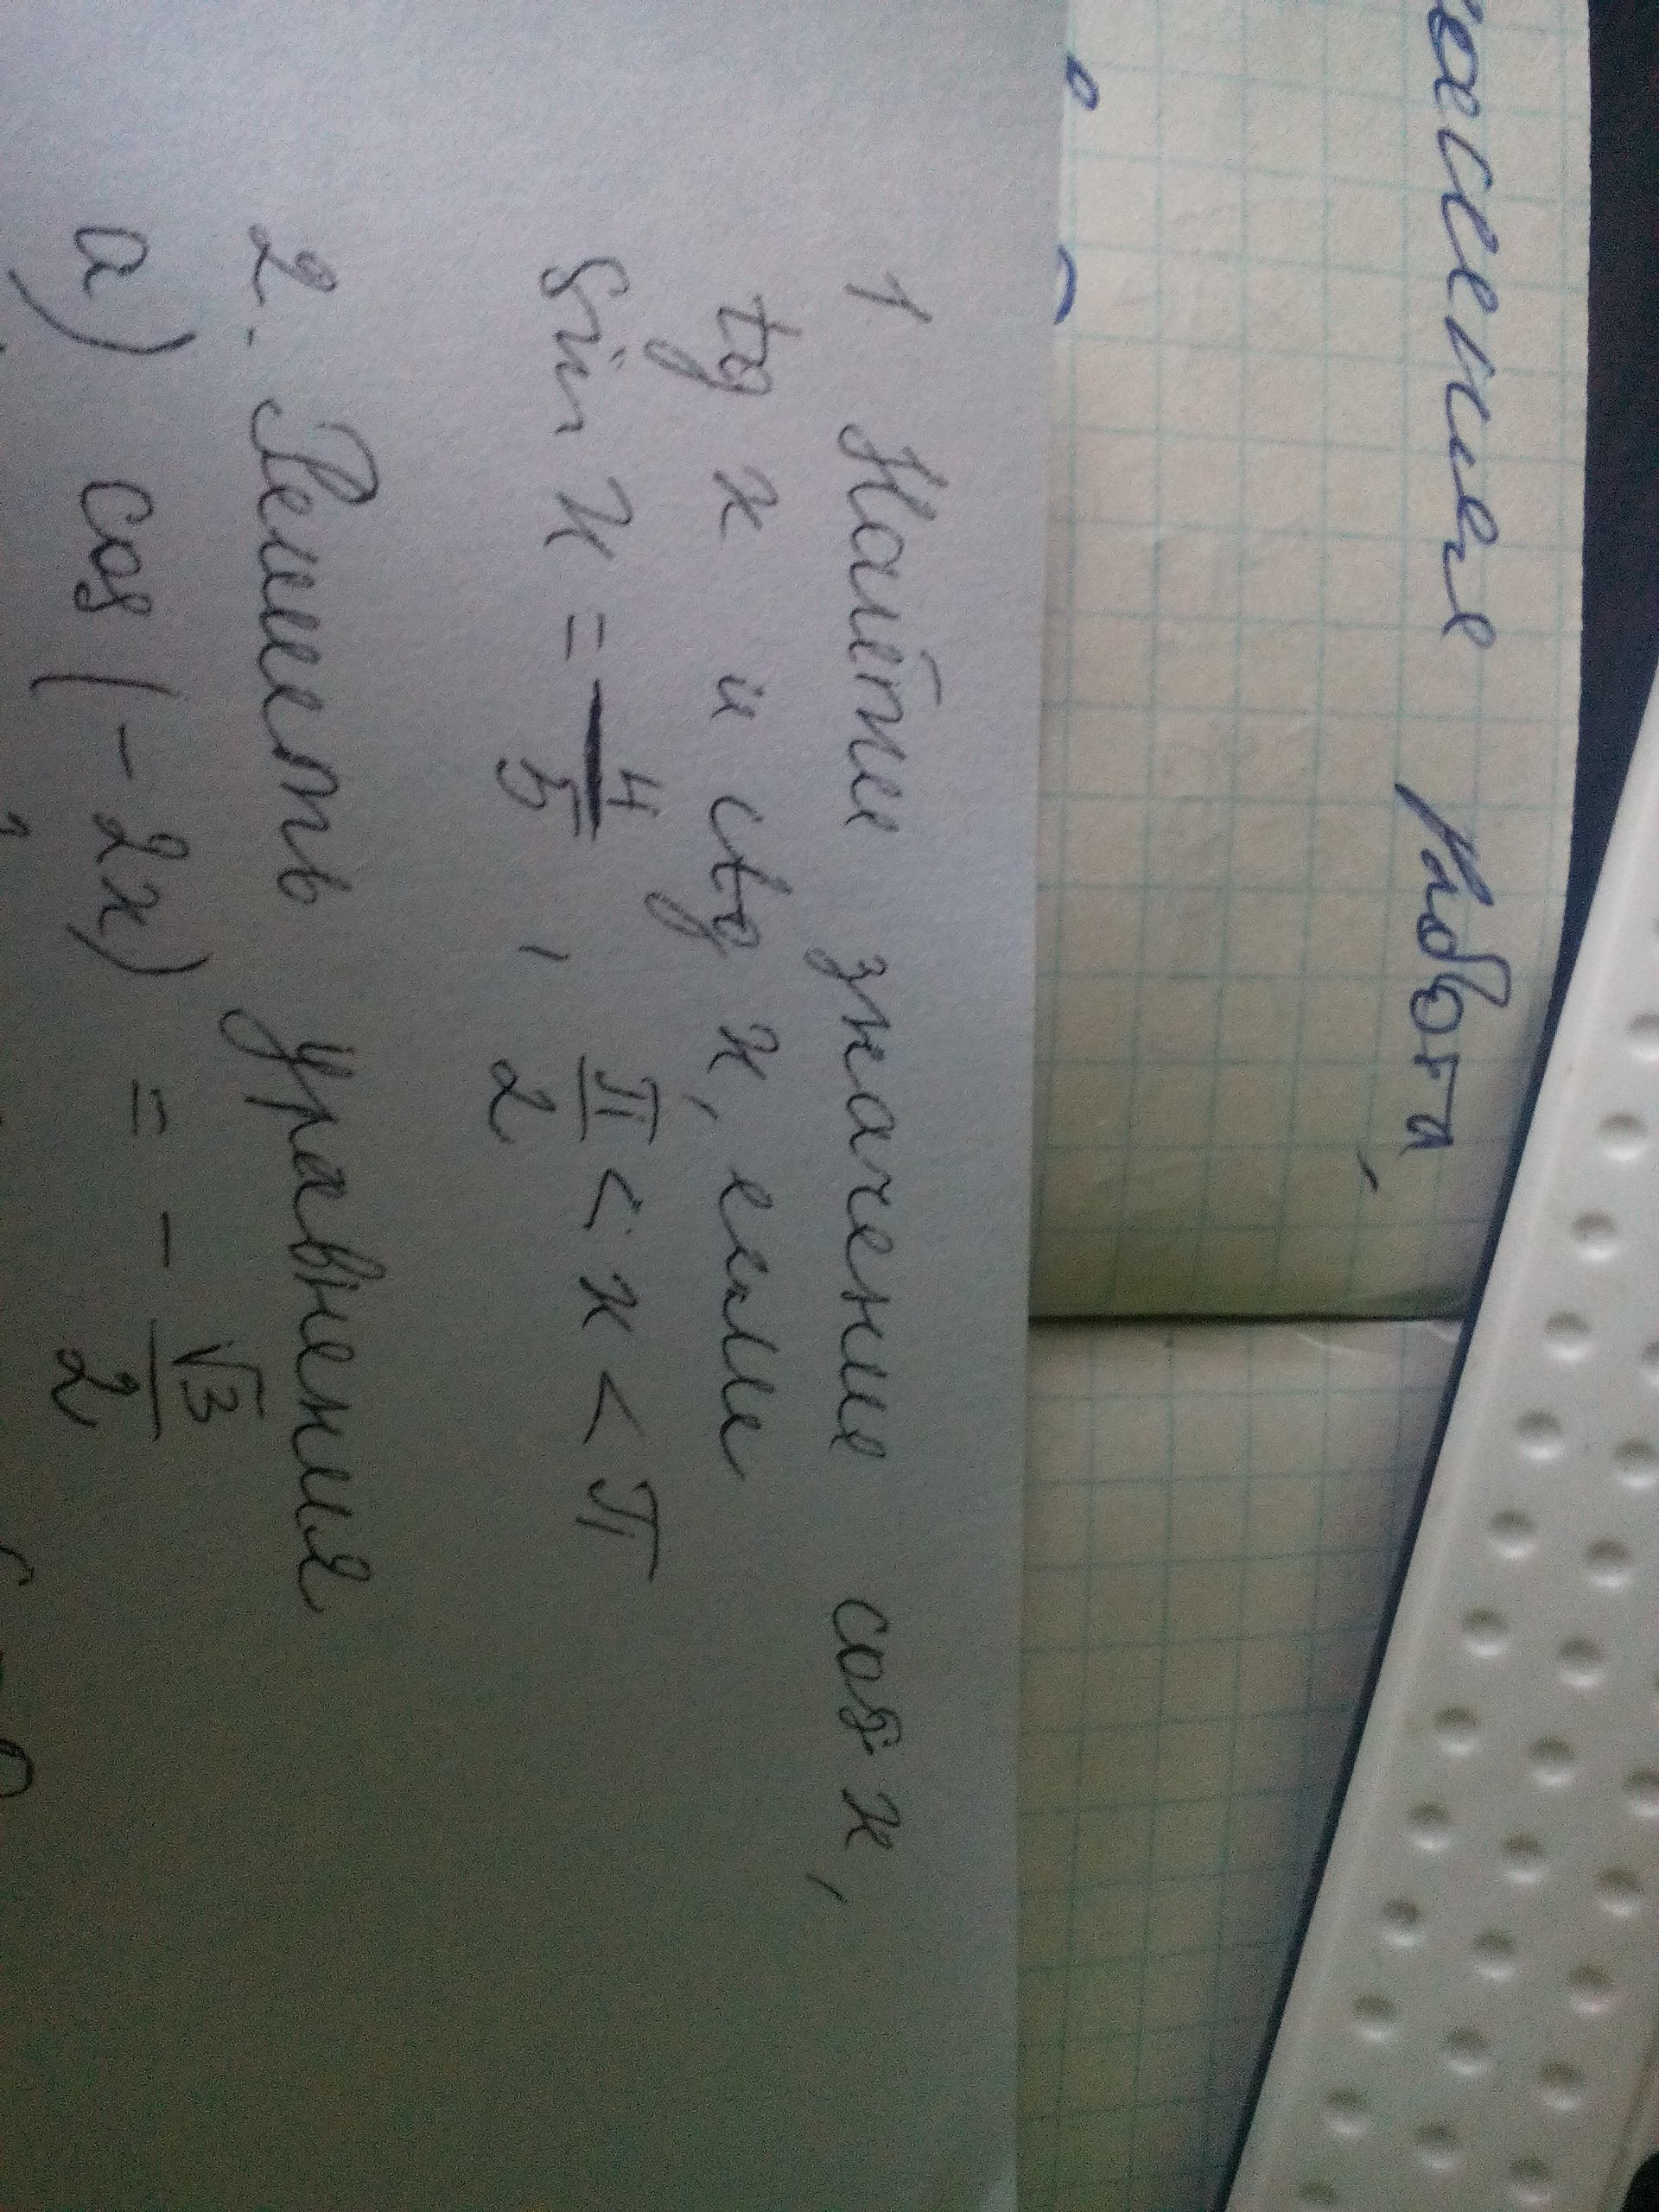 работа
1 Найти значение cos x,
tg x и ctg x, если
sin x = 4/5, π/2 < x < π
2. Решить уравнения
а) cos (-2x) = - √3/2